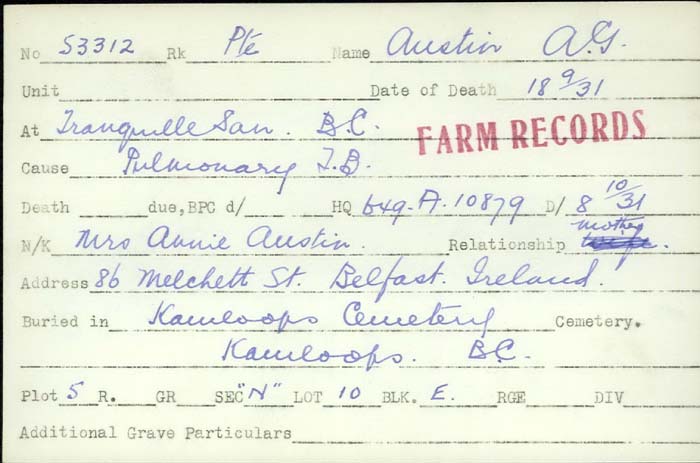 No 53312 Rk Pte Name Austin A.G.
Unit Date of Death 18 9/31
At Tranquille San. B.C.
FARM RECORDS
Cause Pulmonary T.B.
Death due, BPC d/ HQ 649-A-10879 D/ 8 10/31
N/K Mrs Annie Austin. Relationship mother.
Address 86 Melchett St. Belfast. Ireland.
Buried in Kamloops Cemetery Cemetery.
Kamloops. B.C.
Plot 5 R. GR SEC "N" LOT 10 BLK. E. RGE DIV
Additional Grave Particulars